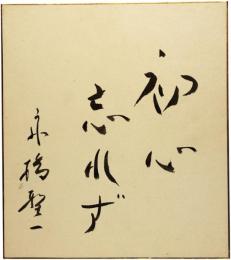 初心
忘れず
永橋聖一